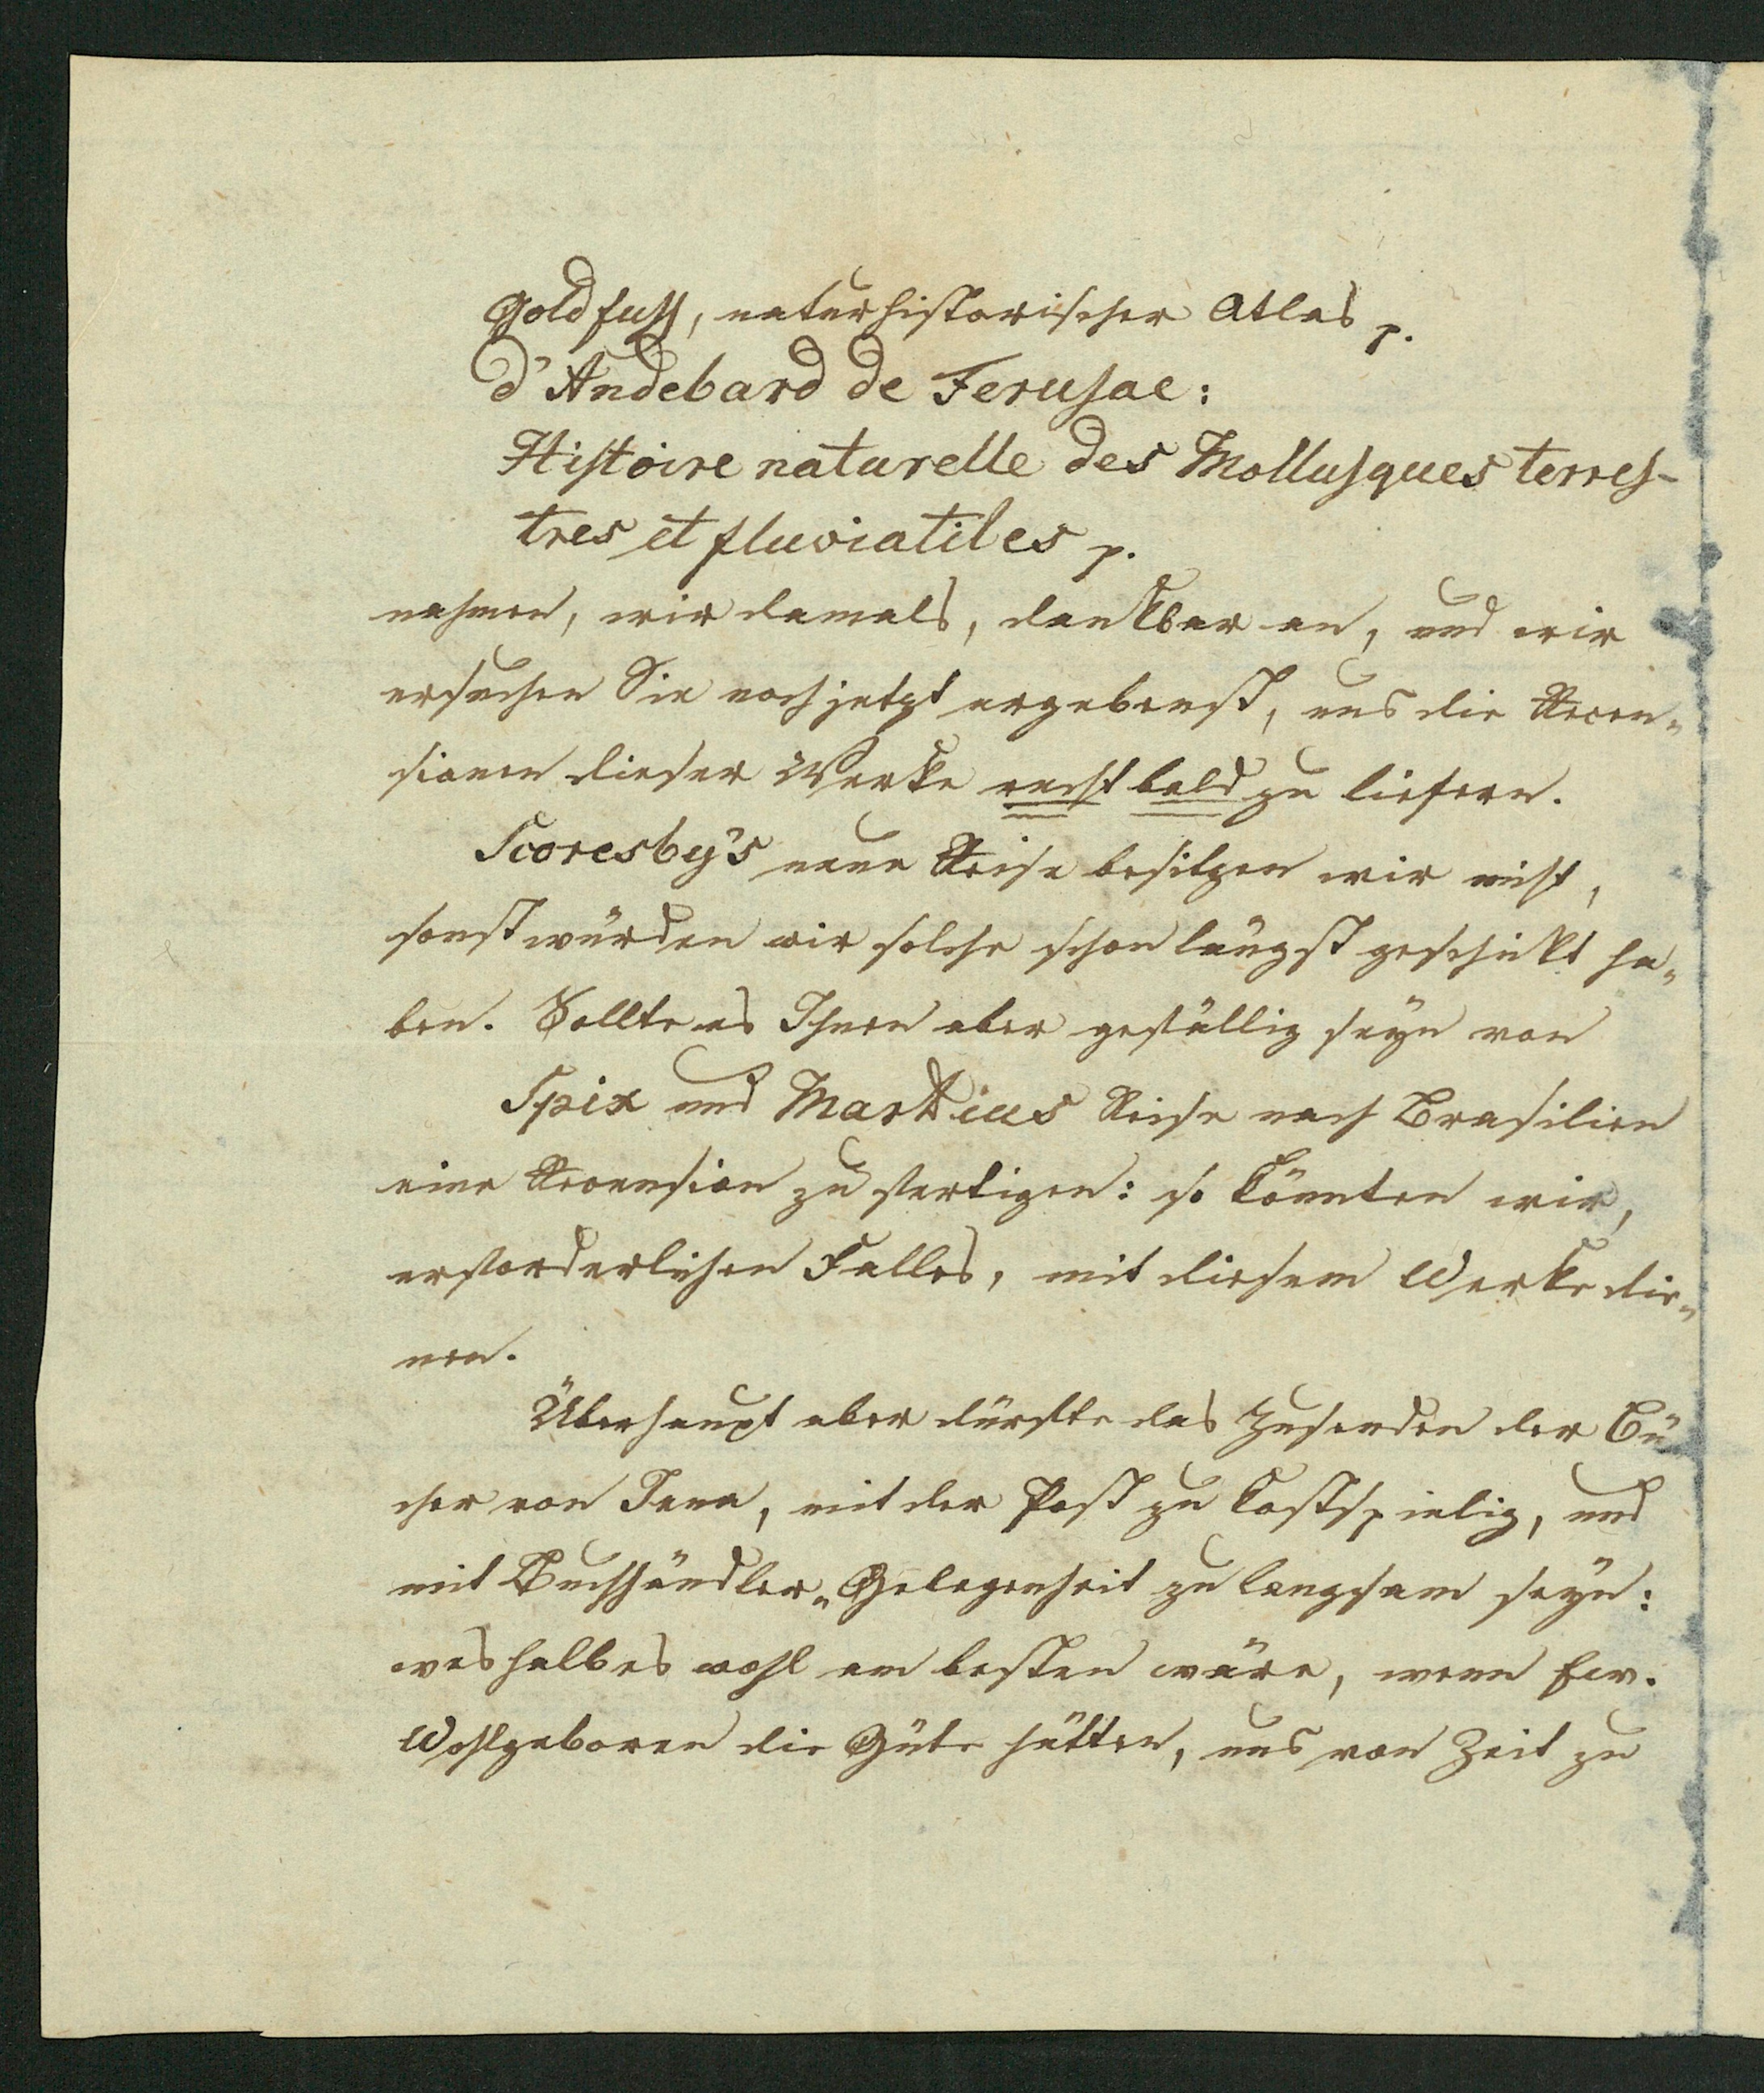 Goldfuss, naturhistorischer Atlas p.
d'Andebard de Ferusac:
Histoire naturelle des Mollusques terres-
tres et fluviatiles p.
nahmen, wir damals, dankbar an, und wir
ersuchen Sie noch jetzt ergebenst, uns die Recen„
sionen dieser Werke recht bald zu liefern.
Scoresby's neue Reise besitzen wir nicht,
sonst würden wir solche schon längst geschikt ha„
ben. Sollte es Ihnen aber gefällig seyn von
Spix und Martius Reise nach Brasilien
eine Recension zu fertigen: so könnten wir,
erforderlichen Falles, mit diesem Werke die„
nen.
Überhaupt aber dürfte das Zusenden der Bü
cher von Jena, mit der Post zu kostspielig, und
mit Buchhändler„Gelegenheit zu langsam seyn:
weshalb es wohl am besten wäre, wenn Ew.
Wohlgeboren die Güte hätten, uns von Zeit zu